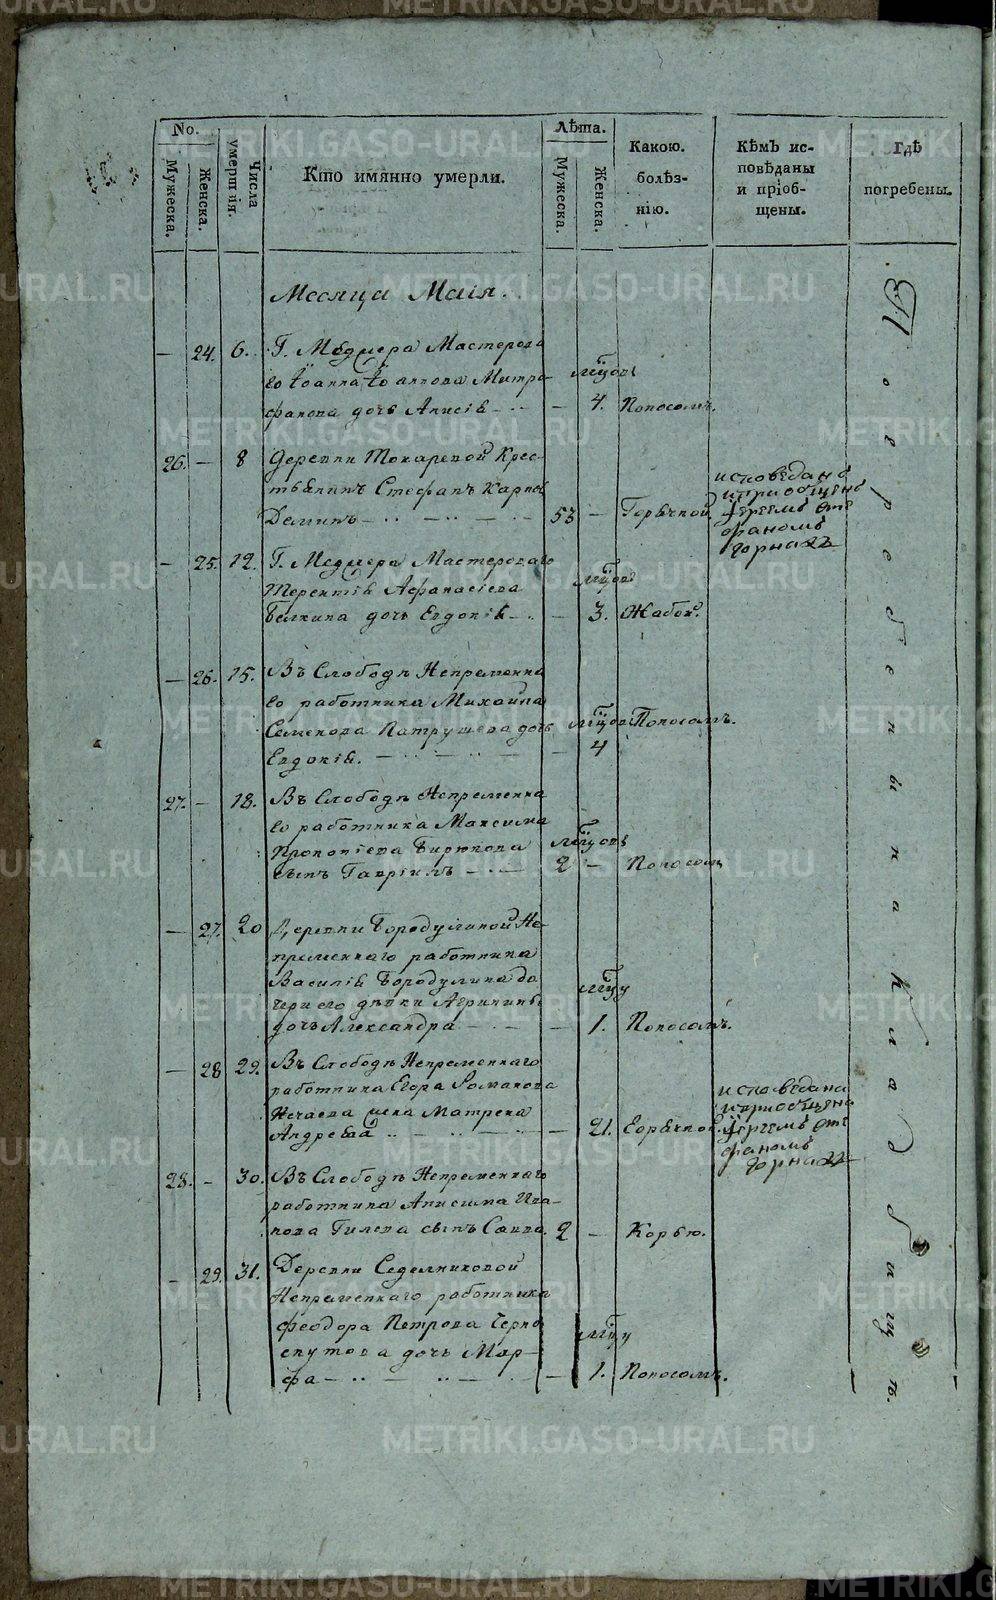 No.
Мужеска.
Женска.
Числа умершія.
Кто имянно умерли.
Лѣта.
Мужеска.
Женска.
Какою.
болѣз-
нію.
Кѣмъ ис-
повѣданы
и пріоб-
щены.
гдѣ
погребены.
Месяца Маія.
— 24. 6. Г. Мастерова
го Іоанна Іоаннова Митро
фанова дочь Анисія — 4. Поносомъ.
26. — 8 Деревни Токаревой Крес-
тьянинъ Стефанъ Карпов
Демин 53 — Горячкой.
исповѣданъ
и приобщенъ
Іереемъ Сте
фаномъ
— 25. 12. Г. Мастероваго
Терентія Афанасіева
Белкина дочь Евдокія — 3. Жабой.
— 26. 15. Въ Слободѣ Непременна
го работника Михайла
Семенова Патрушева дочь Поносомъ.
Евдокія. — 4
27. — 18. Въ Слободѣ Непременна
го работника Максима
Прокопіева Бирюкова
сынъ Гавріилъ — 2 — Поносом
— 27. 20 Деревни Бородулиной Не-
пременнаго работника
Василія Бородулина до
чери его дѣвки Агрипины
дочь Александра — 1. Поносомъ.
— 28 29. Въ Слободѣ Непременнаго
работника Егора Романова
Нечаева жена Матрена
Андреева — 21. Горячкой.
исповѣдана
и приобщена
Іереемъ Сте
фаномъ
28. — 30. Въ Слободѣ Непременнаго
работника Анисима Ива-
нова Гилева сынъ Савва. 2 — Корью.
— 29. 31. Деревни Седелниковой
Непременнаго работника
Феодора Петрова Черно
скутова дочь Мар-
фа — 1. Поносомъ.
На кладбищѣ.
METRIKI.GASO-URAL.RU